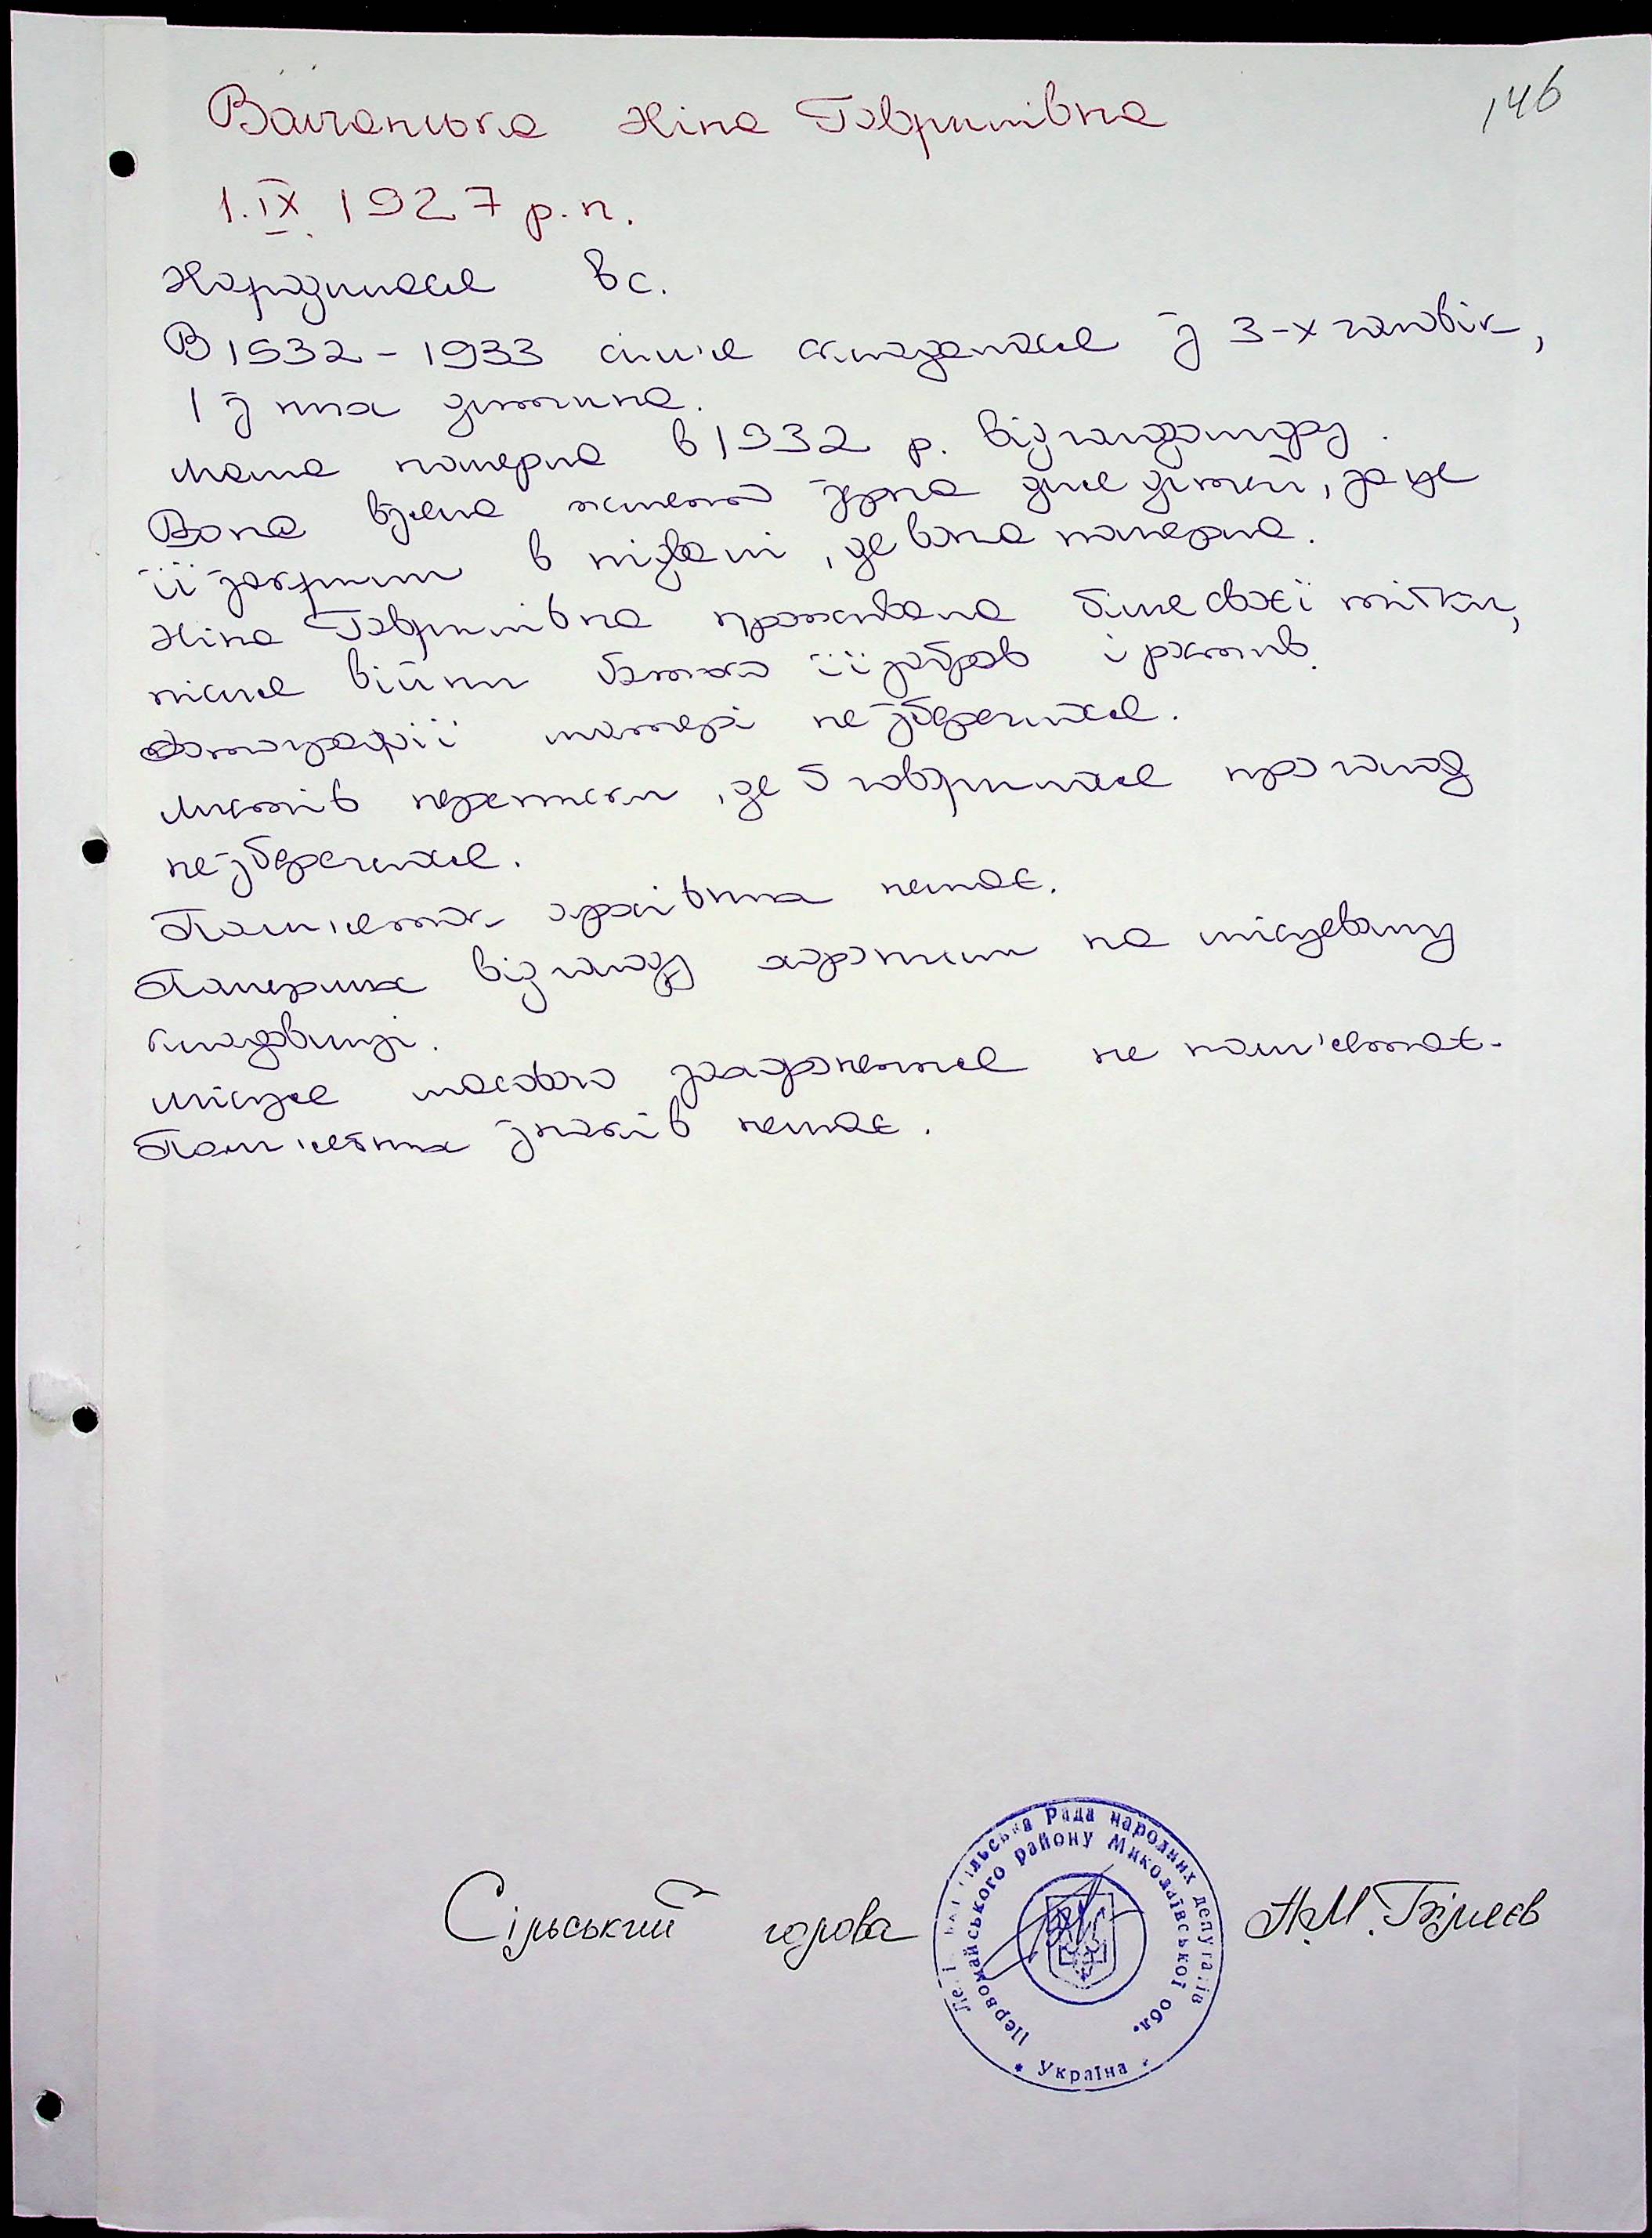 146
Волчанська Ніна Гаврилівна
1.IX. 1927 р.н.
Народилася в с.
В 1932-1933 сім'я складалася з 3-х чоловік,
1 з них дитина.
Мама померла в 1932 р. від голодомору.
Вона взяла жменю зерна для дітей, за це
її закрили в підвалі, де вона померла.
Ніна Гаврилівна проживала біля своєї тітки,
після війни батько її забрав і ростив.
Фотографії матері не збереглося.
Листів переписки, де б говорилося про голод
не збереглося.
Пам'яток архівних немає.
Померлих від голоду хоронили на місцевому
кладовищі.
Місце масового захоронення не пам'ятає.
Пам'ятних знаків немає.
Сільський голова Н.М. Біляєв
сільська Рада народних депутатів
Первомайського району Миколаївської обл.
* Україна *